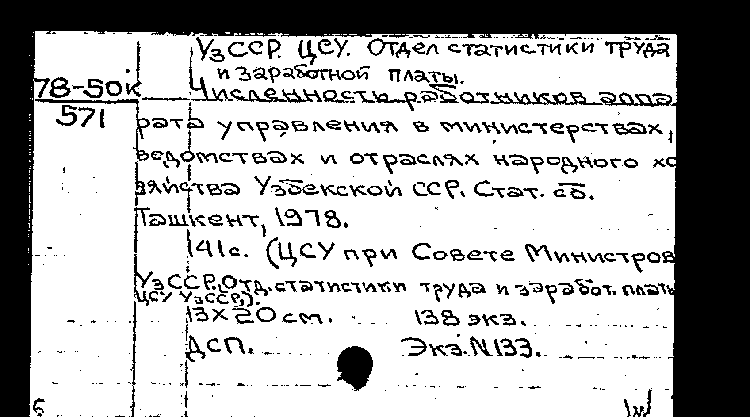 УзССР. ЦСУ. Отдел статистики труда
и заработной платы.
78-50к Численность работников аппа
571 рата управления в министерствах,
ведомствах и отраслях народного хо
зяйства Узбекской ССР. Стат. сб.
Ташкент, 1978.
141с. (ЦСУ при Совете Министров
УзССР. Отд. статистики труда и заработ. платы
ЦСУ УзССР).
13×20 см. 138 экз.
ДСП. Экз. N133.